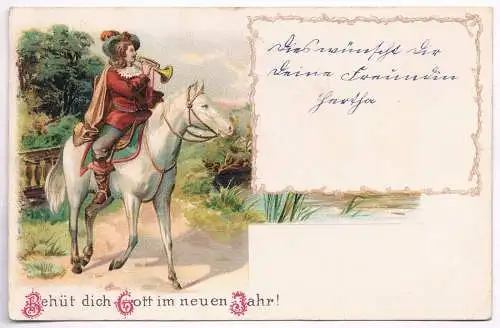 Dies wünscht dir
Deine Freundin
Hertha
Behüt dich Gott im neuen Jahr!